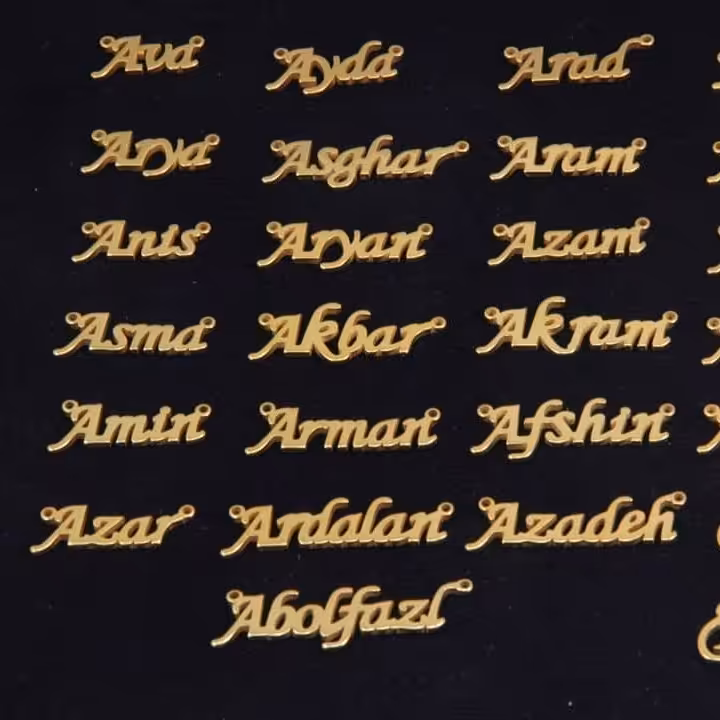 Ava Ayda Arad
Arya Asghar Aram
Anis Aryan Azam
Asma Akbar Akram
Amin Arman Afshin
Azar Ardalan Azadeh
Abolfazl